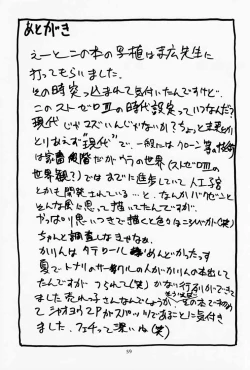 あとがき
えーとこの本の写植は末広先生に
打ってもらいました。
その時突っ込まれて気付いたんですけど、
このストゼロⅢの時代設定っていつなんだ?
現代じゃマズいんじゃないか?ちょっと未来か
とりあえず"現代"で、一般にはクローン等の技術
は 段階だがウラの世界(ストゼロⅢの
世界観?)ではすでに進歩していて人工
とかも開発されている…と、なんかバクゼンと
そんな風に思って描いてたんですが、
やっぱり思いつきで描くと色々 (笑)
ちゃんと調査しなきゃなあ。
かりんはタテロール めんどいかったっス
夏でトナリのサークルの人がかりん本出して
たんですが つられて(笑)かない行列ができて
ました売れっ子さんなんでしょうか 初め
て シャオユウ2POKがスパッツであることに気付き
ました。フェチって深いね(笑)
59